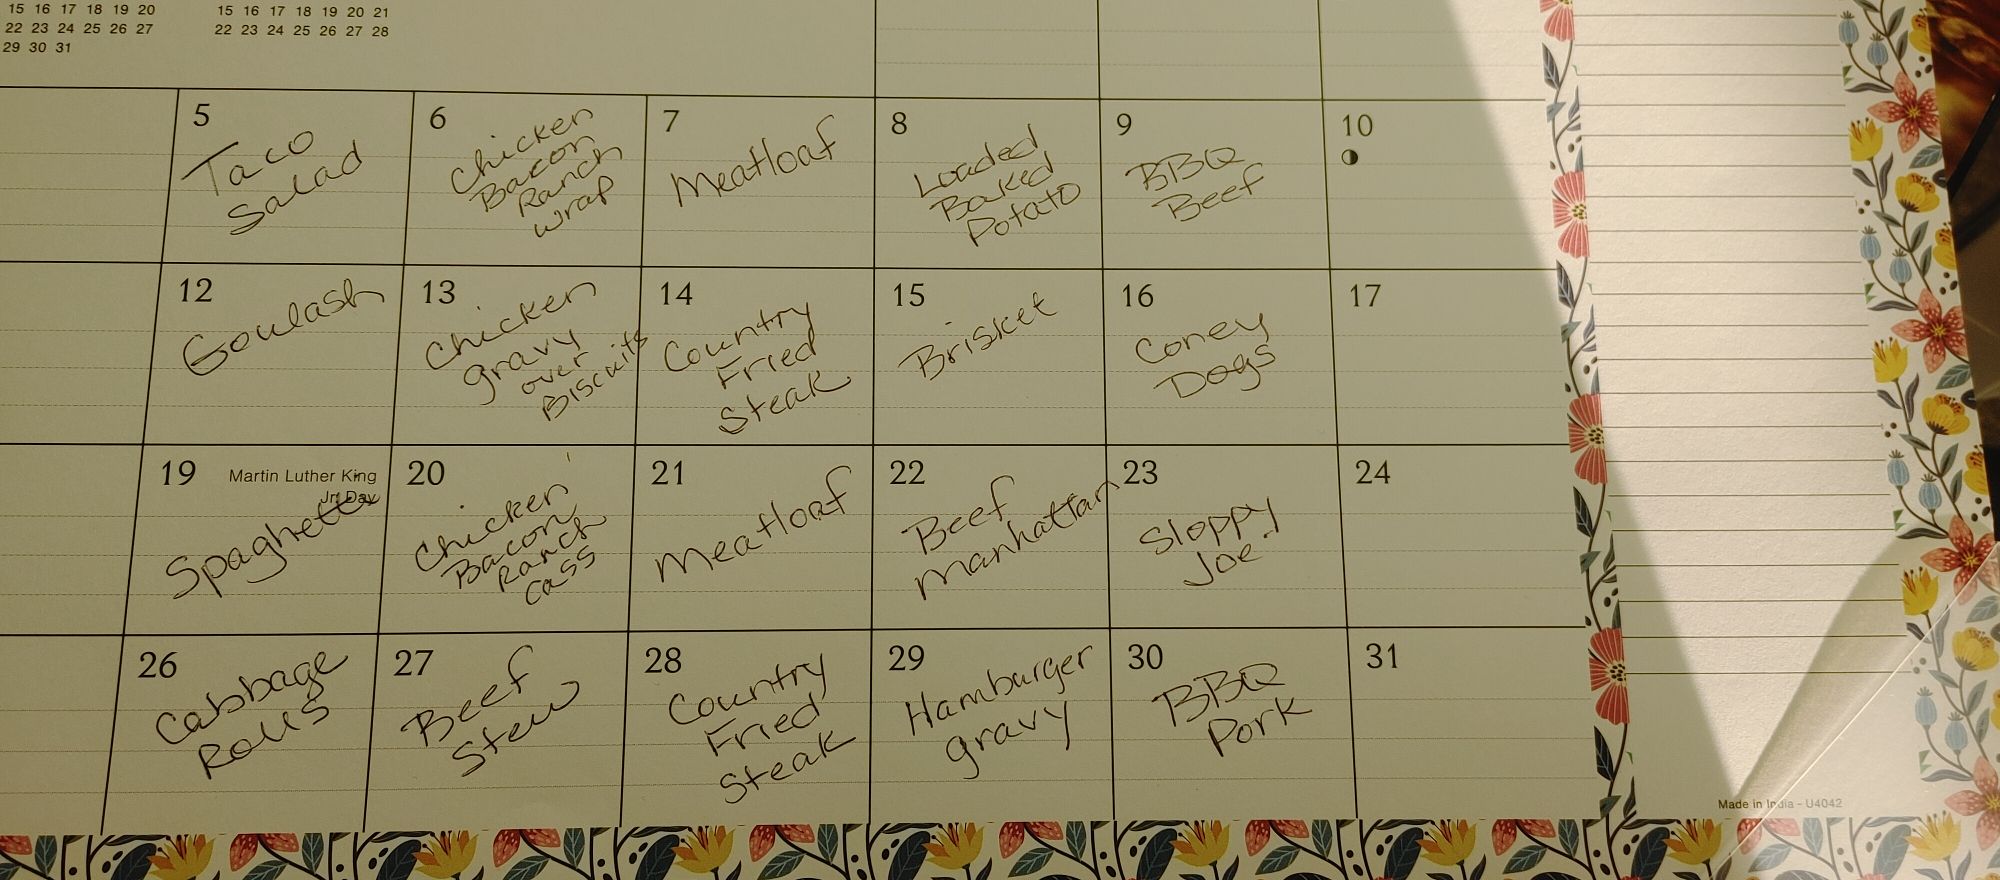 15 16 17 18 19 20
22 23 24 25 26 27
29 30 31
15 16 17 18 19 20 21
22 23 24 25 26 27 28
5
Taco
Salad
6
Chicken
Bacon
Ranch
wrap
7
Meatloaf
8
Loaded
Baked
Potato
9
BBQ
Beef
10
12
Goulash
13
Chicken
gravy
over
Biscuits
14
Country
Fried
Steak
15
Brisket
16
Coney
Dogs
17
19
Martin Luther King
Jr. Day
Spaghetti
20
Chicken
Bacon
Ranch
Cass
21
Meatloaf
22
Beef
Manhattan
23
Sloppy
Joe
24
26
Cabbage
Rolls
27
Beef
Stew
28
Country
Fried
Steak
29
Hamburger
gravy
30
BBQ
Pork
31
Made in India - U4042